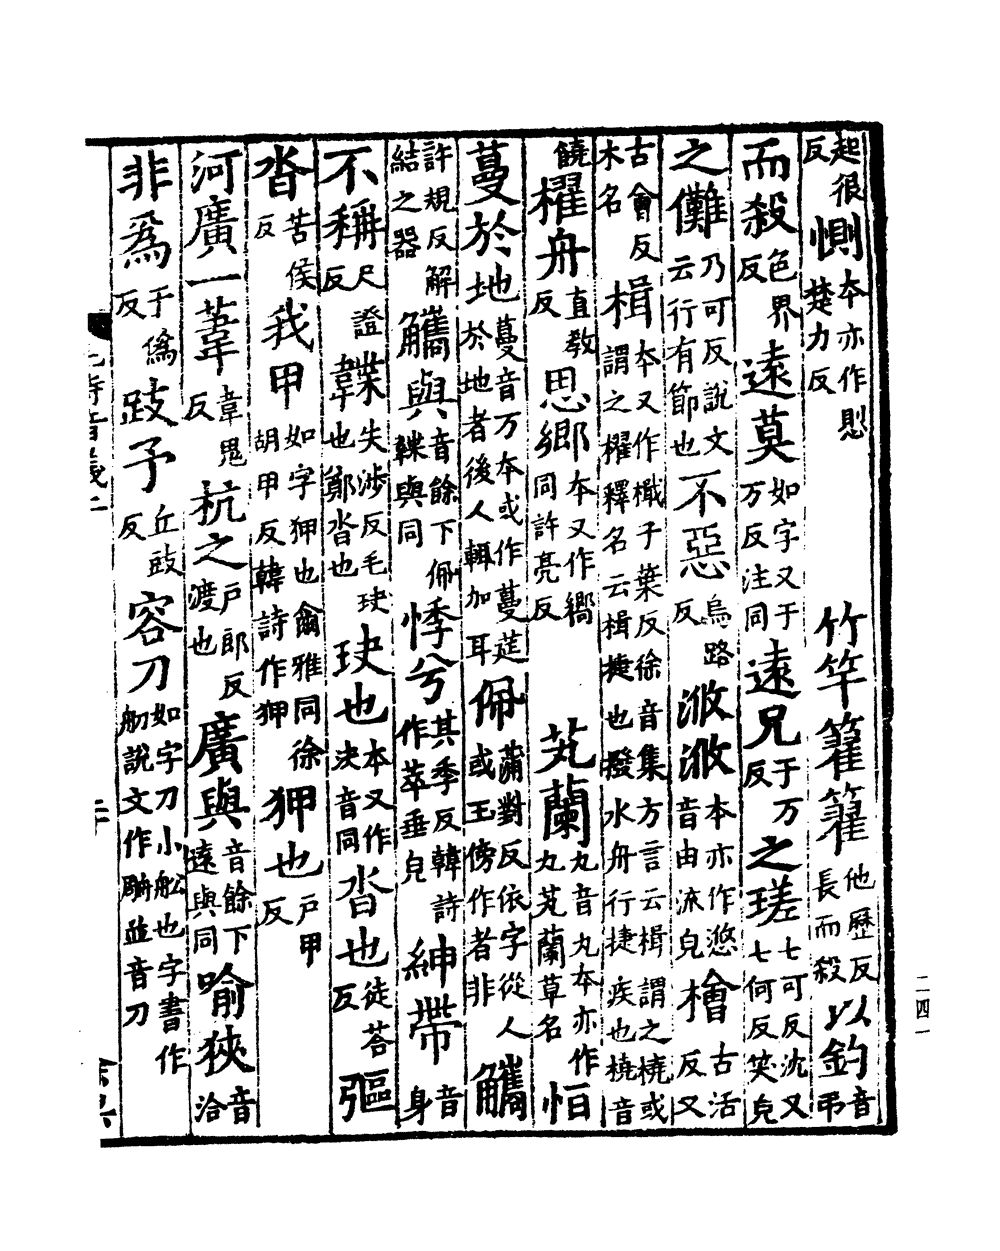 起很反惻本亦作楚力反　竹竿籊籊他歷反長而殺以釣音弔
而殺色界反遠莫如字又于万反注同遠兄于万反之瑳七可反沈又七何反笑皃
之儺乃可反說文云行有節也不惡烏路反浟浟本亦作悠音由流皃檜古活反又
古會反木名楫本又作檝子葉反徐音集方言云楫謂之橈或謂之櫂釋名云楫捷也撥水舟行捷疾也橈音
饒櫂舟直教反思鄉本又作嚮同許亮反　芄蘭丸音丸本亦作丸芄蘭草名恒
蔓於地蔓音万本或作蔓莚於地者後人輒加耳佩蒲對反依字從人或玉傍作者非觿
許規反解結之器觿與音餘下佩韘與同悸兮其季反韓詩作萃垂皃紳帶音身
不稱尺證反韘失涉反毛玦也鄭沓也玦也本又作決音同沓也徒荅反彄
沓苦侯反我甲如字狎也爾雅同徐胡甲反韓詩作狎狎也戶甲反
河廣一葦韋鬼反杭之戶郎反渡也廣與音餘下遠與同喻狹音洽
非為于偽反跂予丘豉反容刀如字刀小船也字書作舠說文作䑠並音刀
二四一